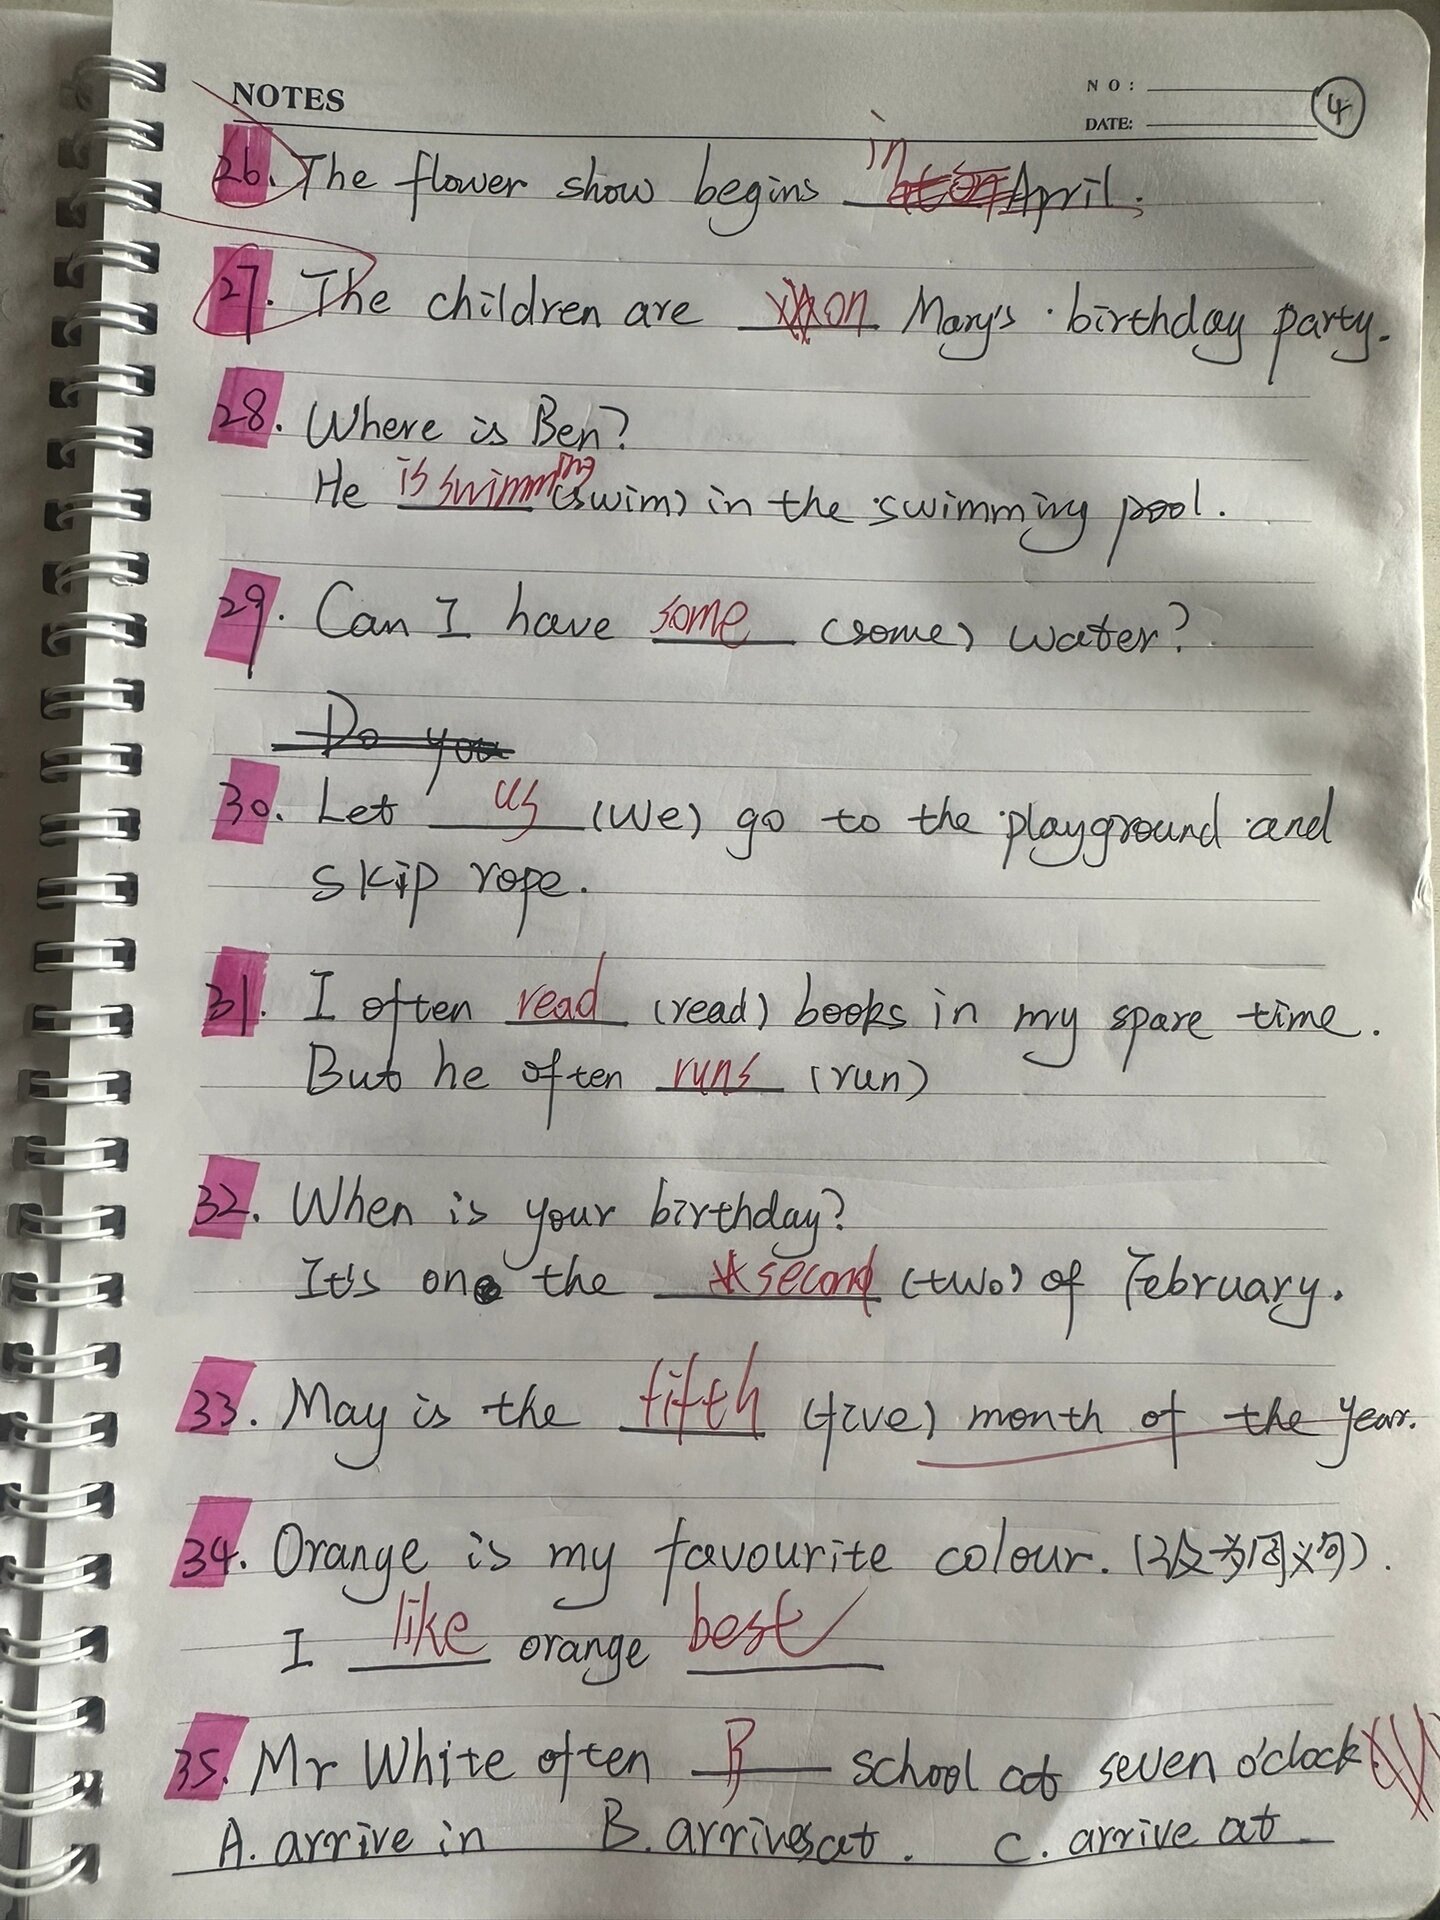 NOTES
NO:
DATE:
4
26. The flower show begins in April.
27. The children are on Mary's birthday party.
28. Where is Ben?
He is swimming (swim) in the swimming pool.
29. Can I have some (some) water?
Do you
30. Let us (we) go to the playground and
skip rope.
31. I often read (read) books in my spare time.
But he often runs (run)
32. When is your birthday?
It's on the second (two) of February.
33. May is the fifth (five) month of the year.
34. Orange is my favourite colour. (改为同义句).
I like orange best
35. Mr White often B school at seven o'clock
A. arrive in B. arrives at. C. arrive at